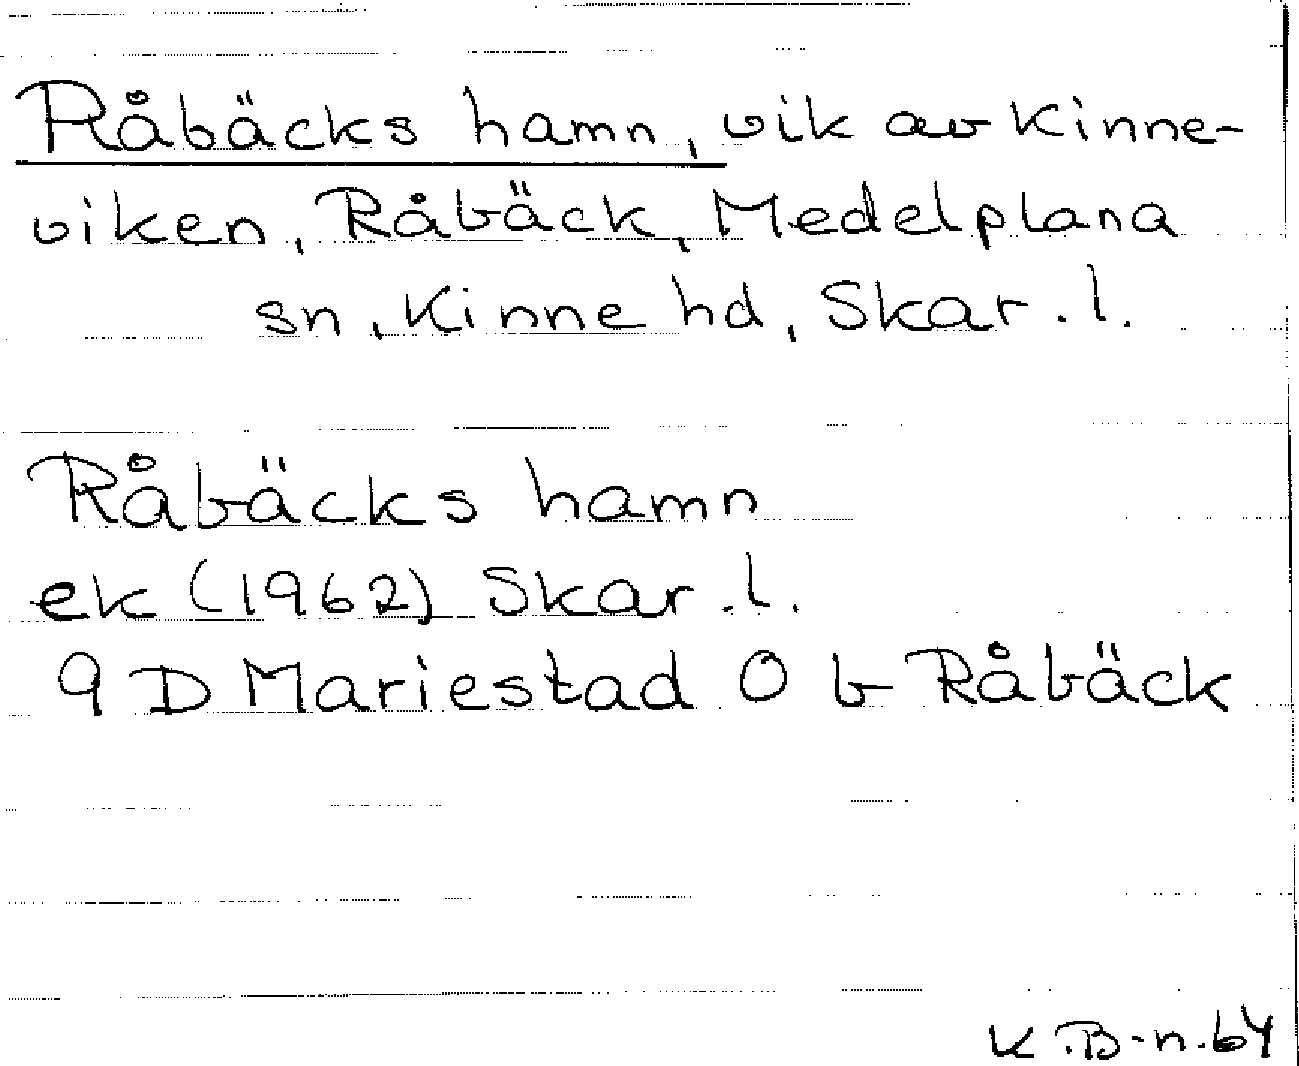 Råbäcks hamn, vik av Kinne-
viken, Råbäck, Medelplana
sn, Kinne hd, Skar. l.
Råbäcks hamn
ek (1962) Skar. l.
9 D Mariestad 0 b Råbäck
K.B-n. 64